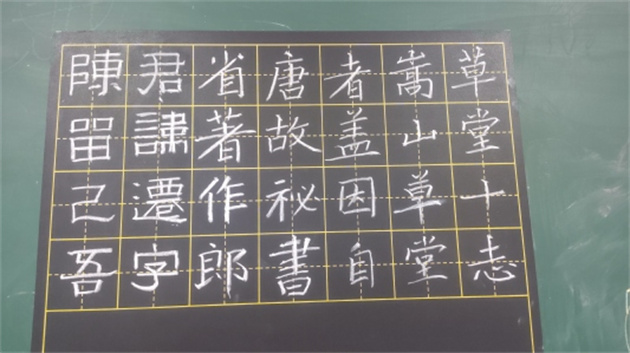 草堂十志
嵩山草堂
者盖因自
唐故祕書
省著作郎
君諱遷字
陳留己吾